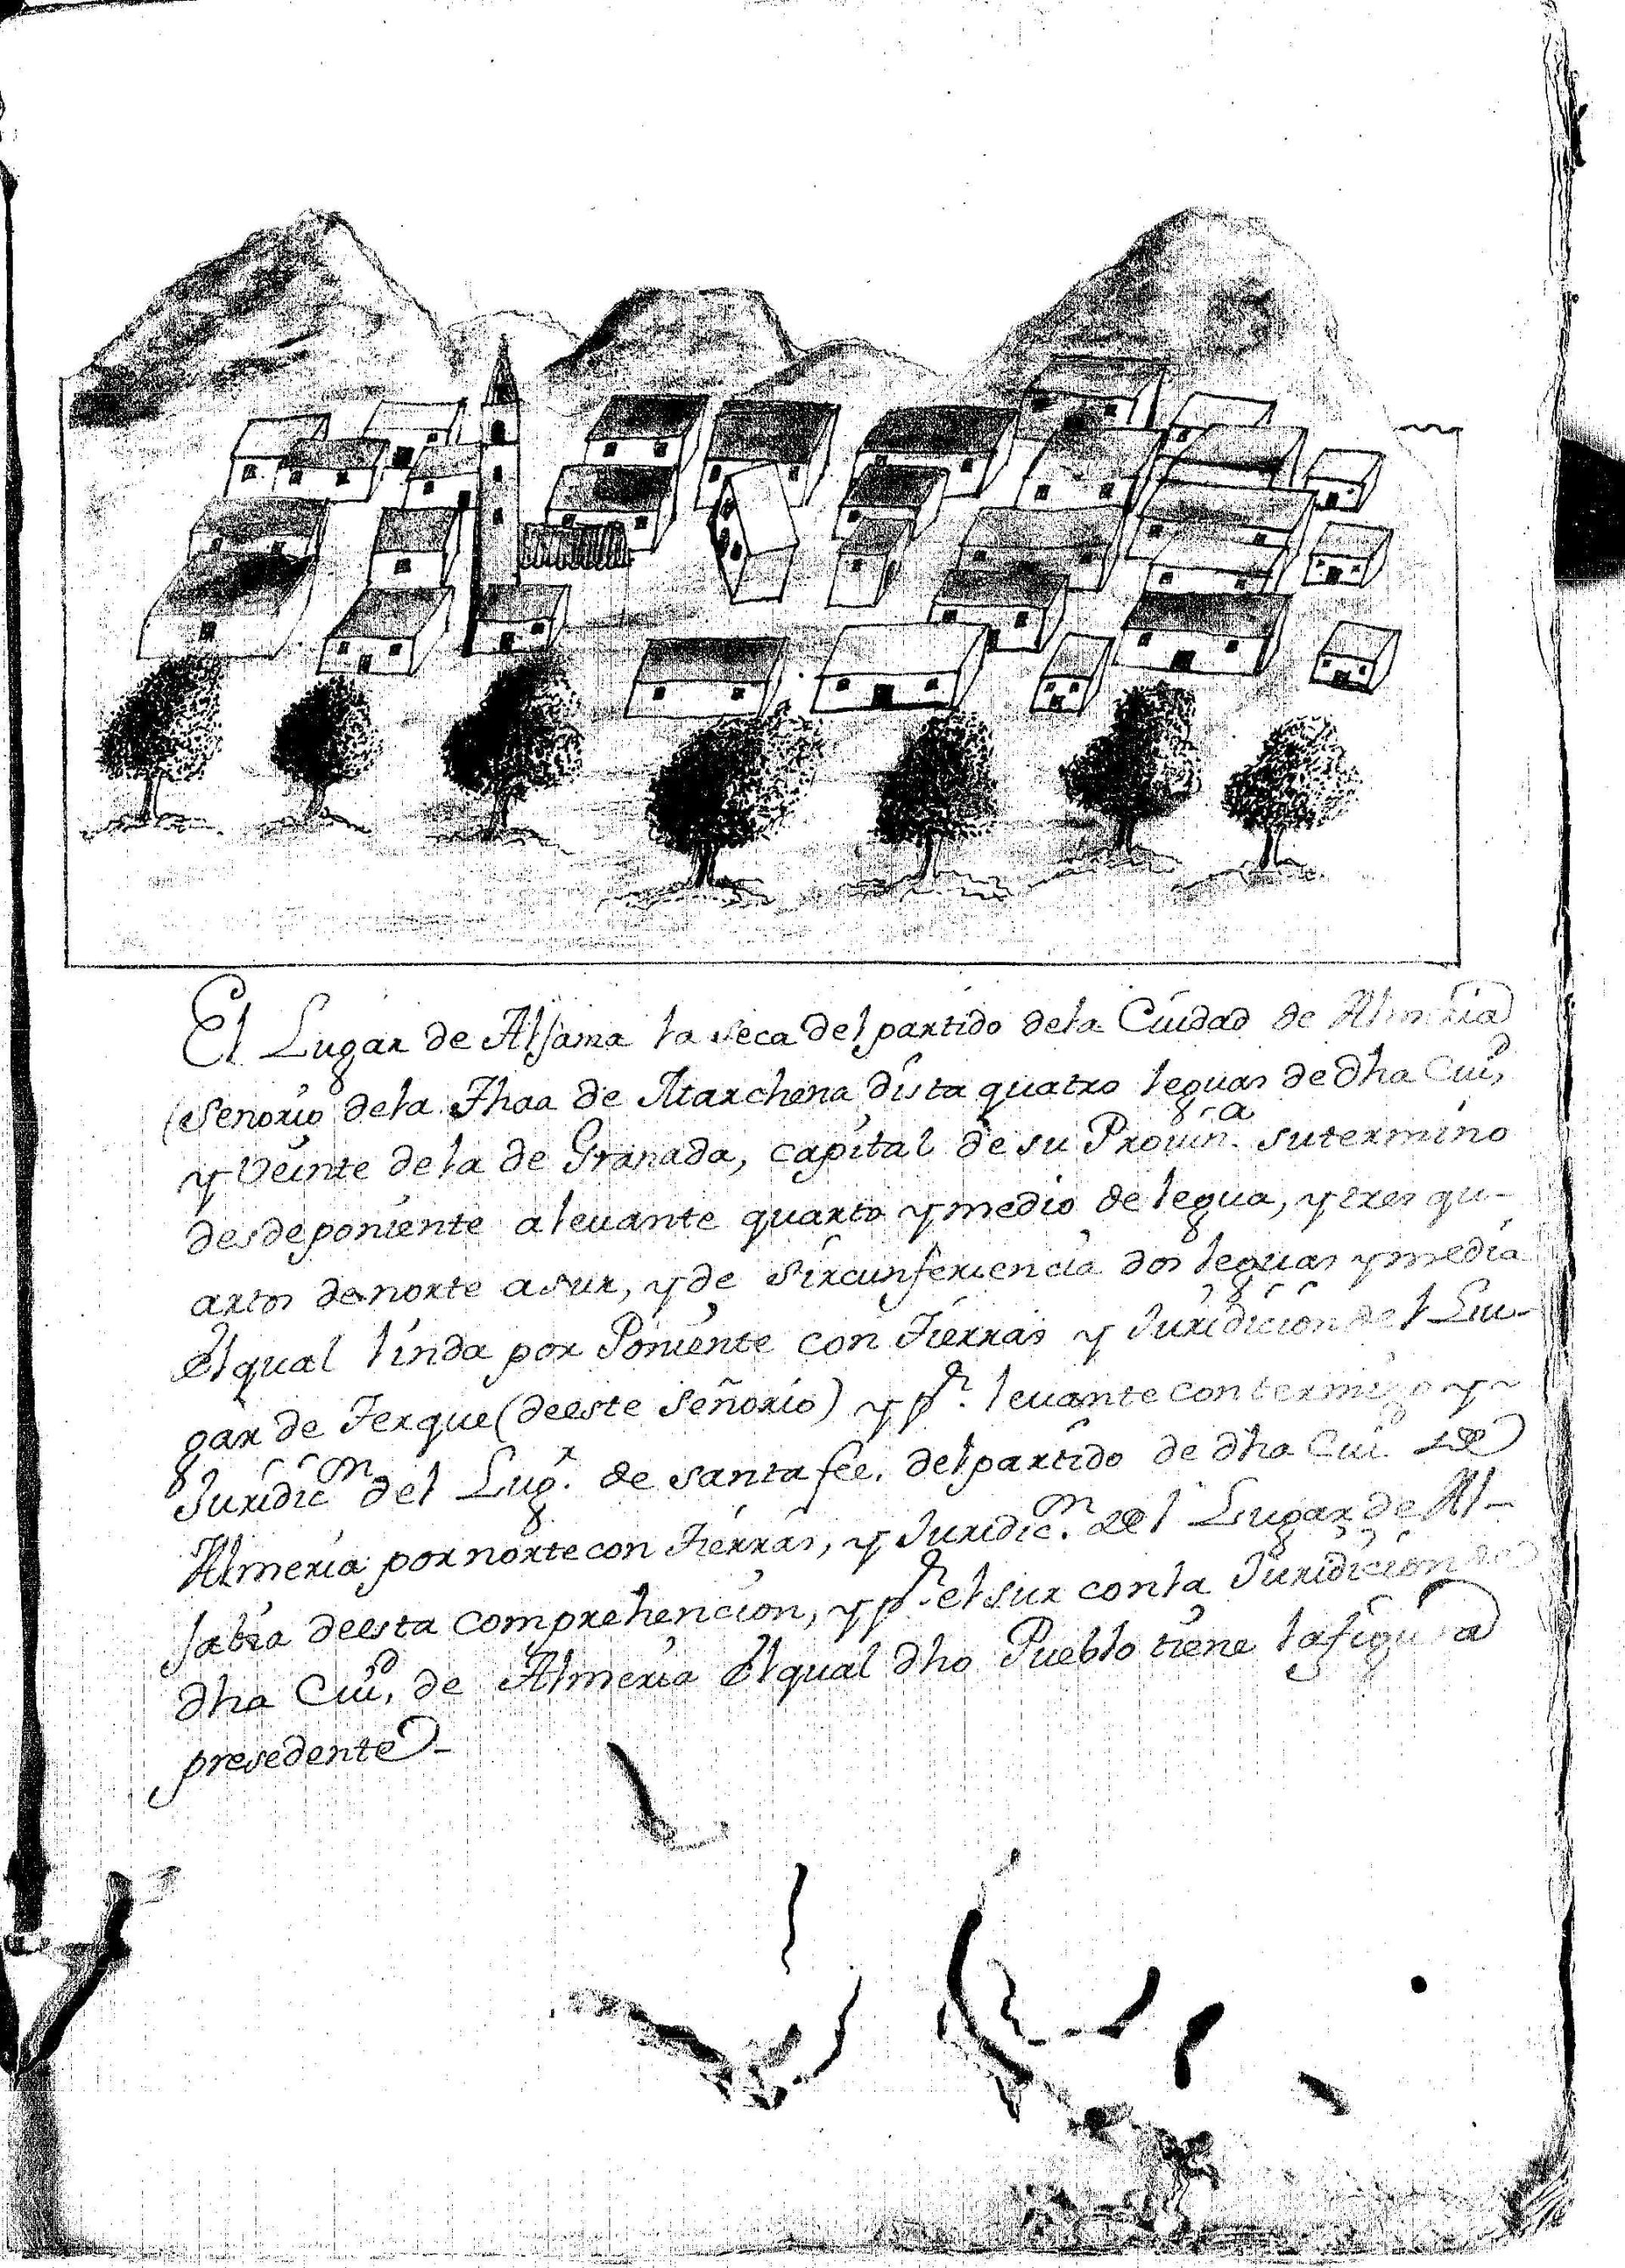 El Lugar de Alhama la seca del partido dela Ciudad de Almeria
(Senorio dela Thaa de Marchena dista quatro leguas de dha Ciud,
y Veinte dela de Granada, capital de su Provin.a su termino
desde poniente a levante quarto y medio de legua, y tres qu-
artos de norte a sur, y de sircunferiencia dos leguas y media
el qual linda por Poniente con Tierras y Juridicion del Lu-
gar de Terque (de este Señorio) y p.r levante con termino y
Juridic.on del Lug.r de santa fee, del partido de dha Ciud de
Almeria por norte con Tierras, y Juridic.on del Lugar de Al-
sabia de esta comprehencion, y p.r el sur con la Juridicion de
dha Ciud, de Almeria El qual dho Pueblo tiene la figura
presedente-